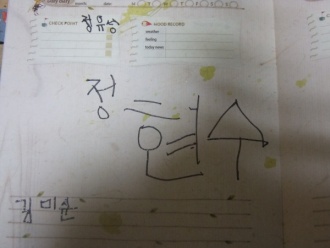 CHECK POINT 정유승
MOOD RECORD
weather
feeling
today news
정 현수
김 미순